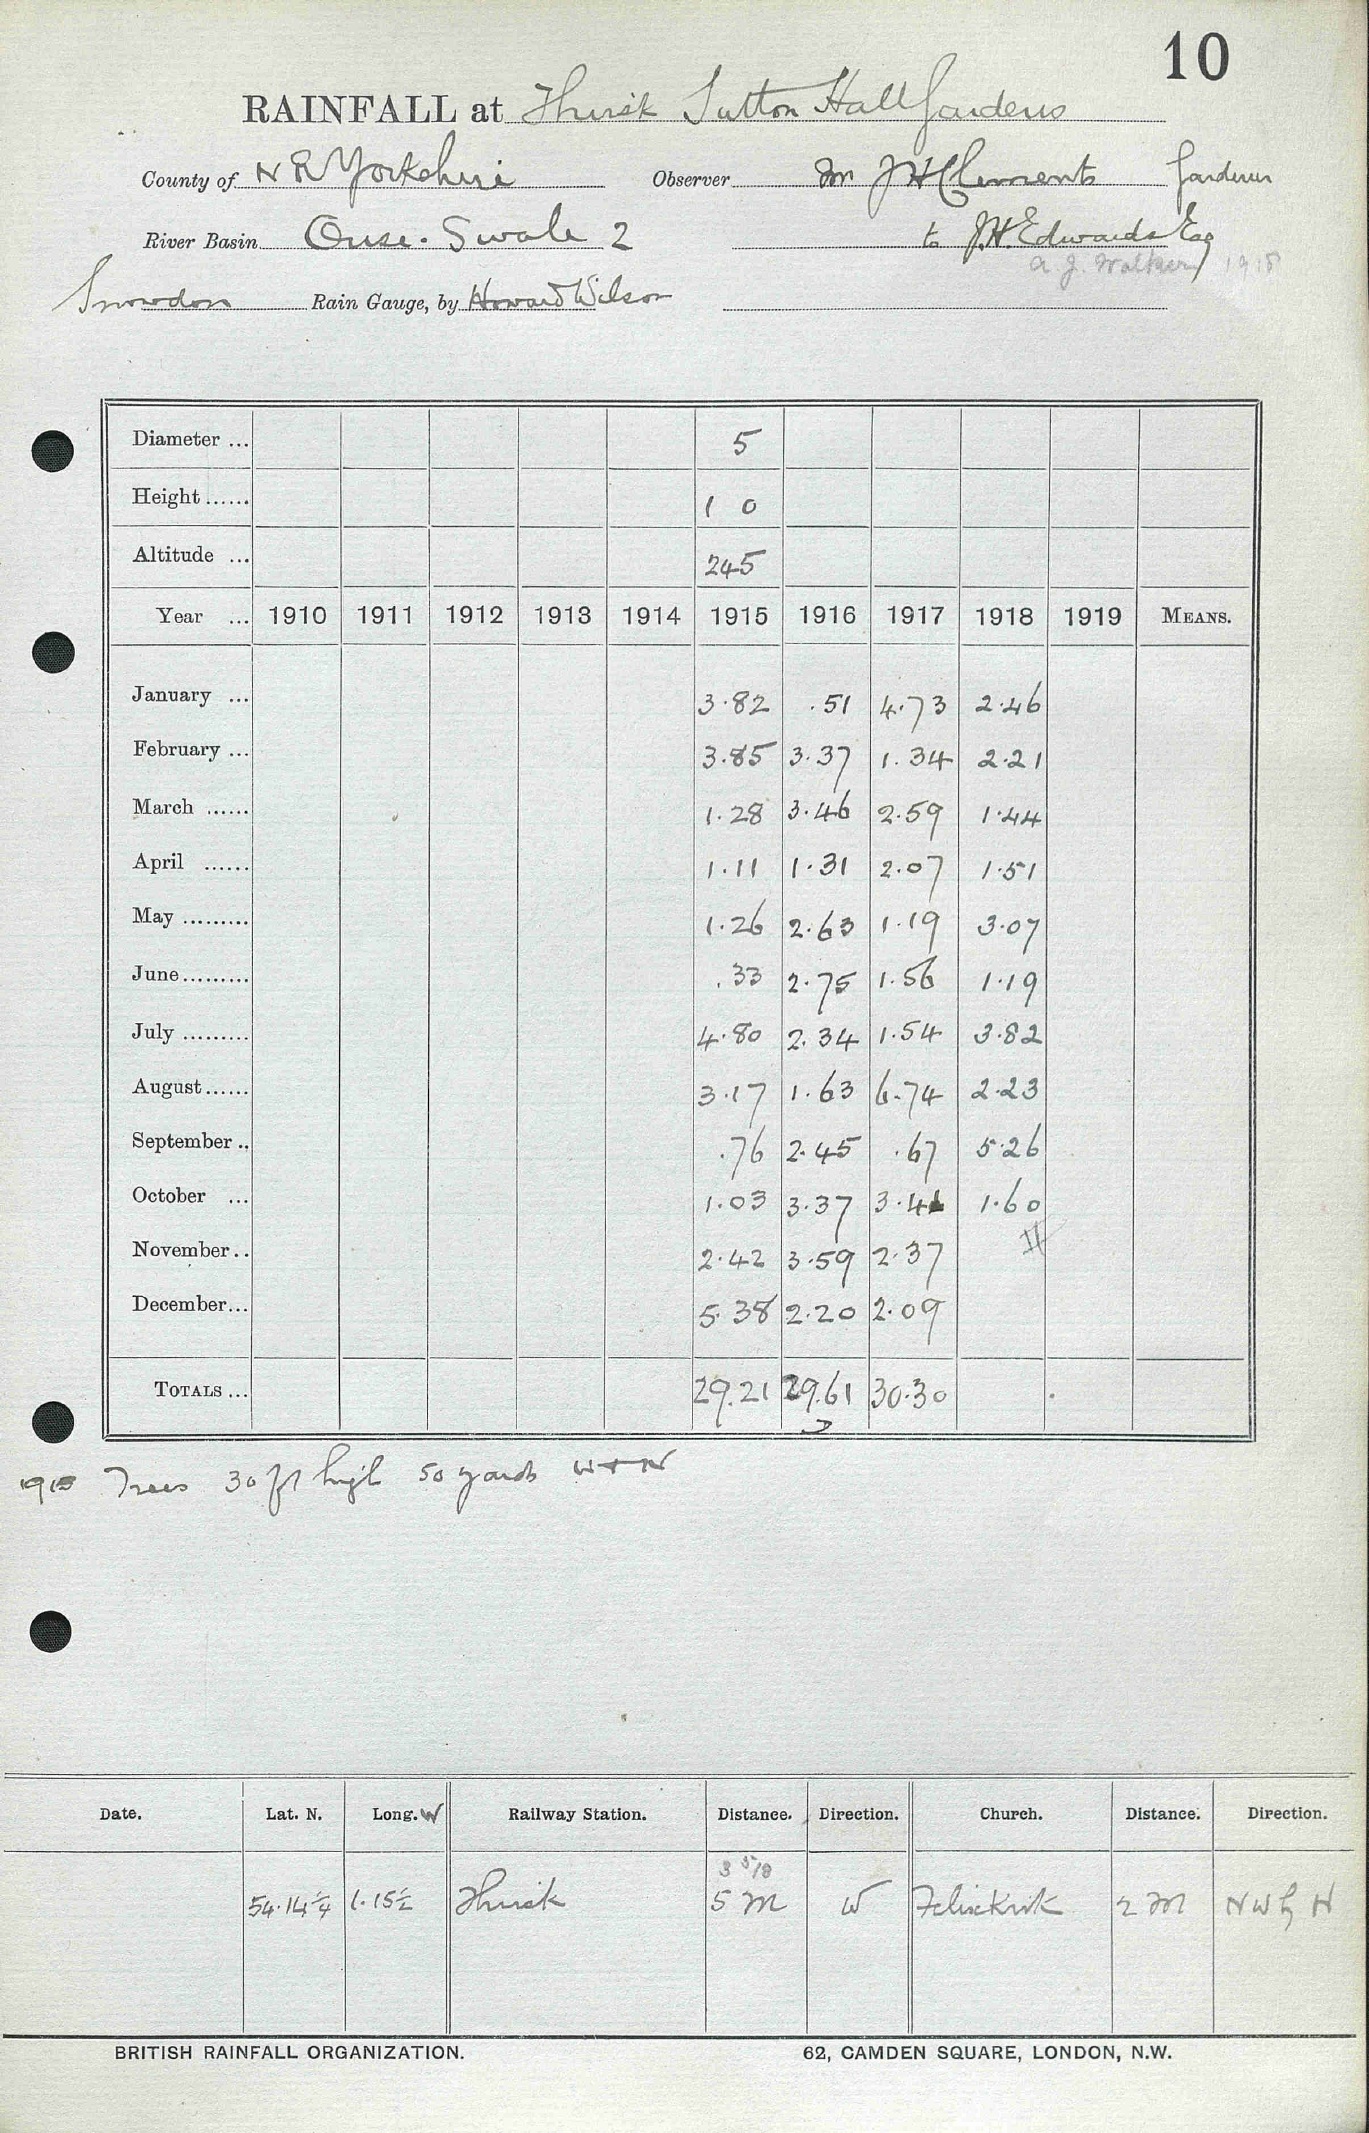 10
RAINFALL at Thirsk Sutton Hall Gardens
County of N R Yorkshire Observer Mr J H Clements Gardener
River Basin Ouse. Swale 2 to J.H. Edwards Esq
A J. Walker 1918
Snowdon Rain Gauge, by Howard Wilson
Diameter ... 5
Height...... 1 0
Altitude ... 245
Year ... 1910 1911 1912 1913 1914 1915 1916 1917 1918 1919 MEANS.
January ... 3.82 .51 4.73 2.46
February ... 3.85 3.37 1.34 2.21
March ...... 1.28 3.46 2.59 1.44
April ...... 1.11 1.31 2.07 1.51
May ......... 1.26 2.63 1.19 3.07
June......... .33 2.75 1.56 1.19
July ......... 4.80 2.34 1.54 3.82
August...... 3.17 1.63 6.74 2.23
September .. .76 2.45 .67 5.26
October ... 1.03 3.37 3.41 1.60
November.. 2.42 3.59 2.37
December... 5.38 2.20 2.09
TOTALS ... 29.21 29.61 30.30
1915 Trees 30 ft high 50 yards W + N
Date. Lat. N. Long. W Railway Station. Distance. Direction. Church. Distance. Direction.
3 5/8
54.14¼ 1.15½ Thirsk 5 M W Felixkirk 2 M N W by N
BRITISH RAINFALL ORGANIZATION. 62, CAMDEN SQUARE, LONDON, N.W.